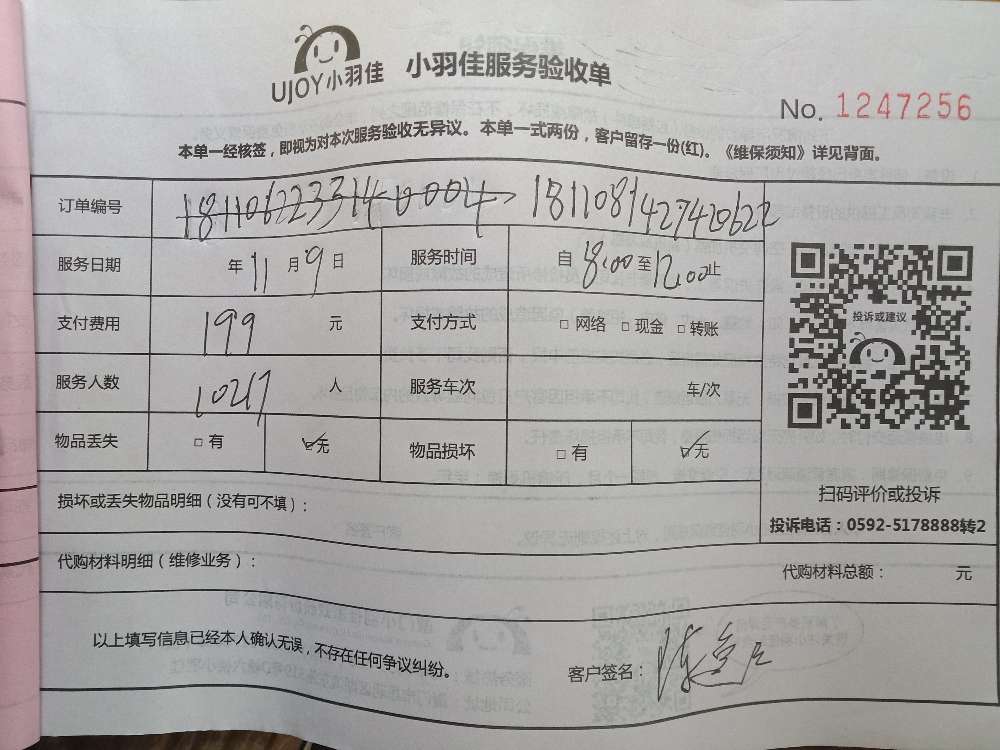 UJOY小羽佳 小羽佳服务验收单
No. 1247256
本单一经核签，即视为对本次服务验收无异议。本单一式两份，客户留存一份(红)。《维保须知》详见背面。
订单编号 181106223314 0004 1811081427420622
服务日期 年 11 月 9 日 服务时间 自 8:00 至 12:00 止
支付费用 199 元 支付方式 □ 网络 □ 现金 □ 转账
服务人数 10217 人 服务车次 车/次
物品丢失 □ 有 ☑ 无 物品损坏 □ 有 ☑ 无
投诉或建议
扫码评价或投诉
投诉电话：0592-5178888转2
损坏或丢失物品明细（没有可不填）：
代购材料明细（维修业务）： 代购材料总额： 元
以上填写信息已经本人确认无误，不存在任何争议纠纷。 客户签名： 陈